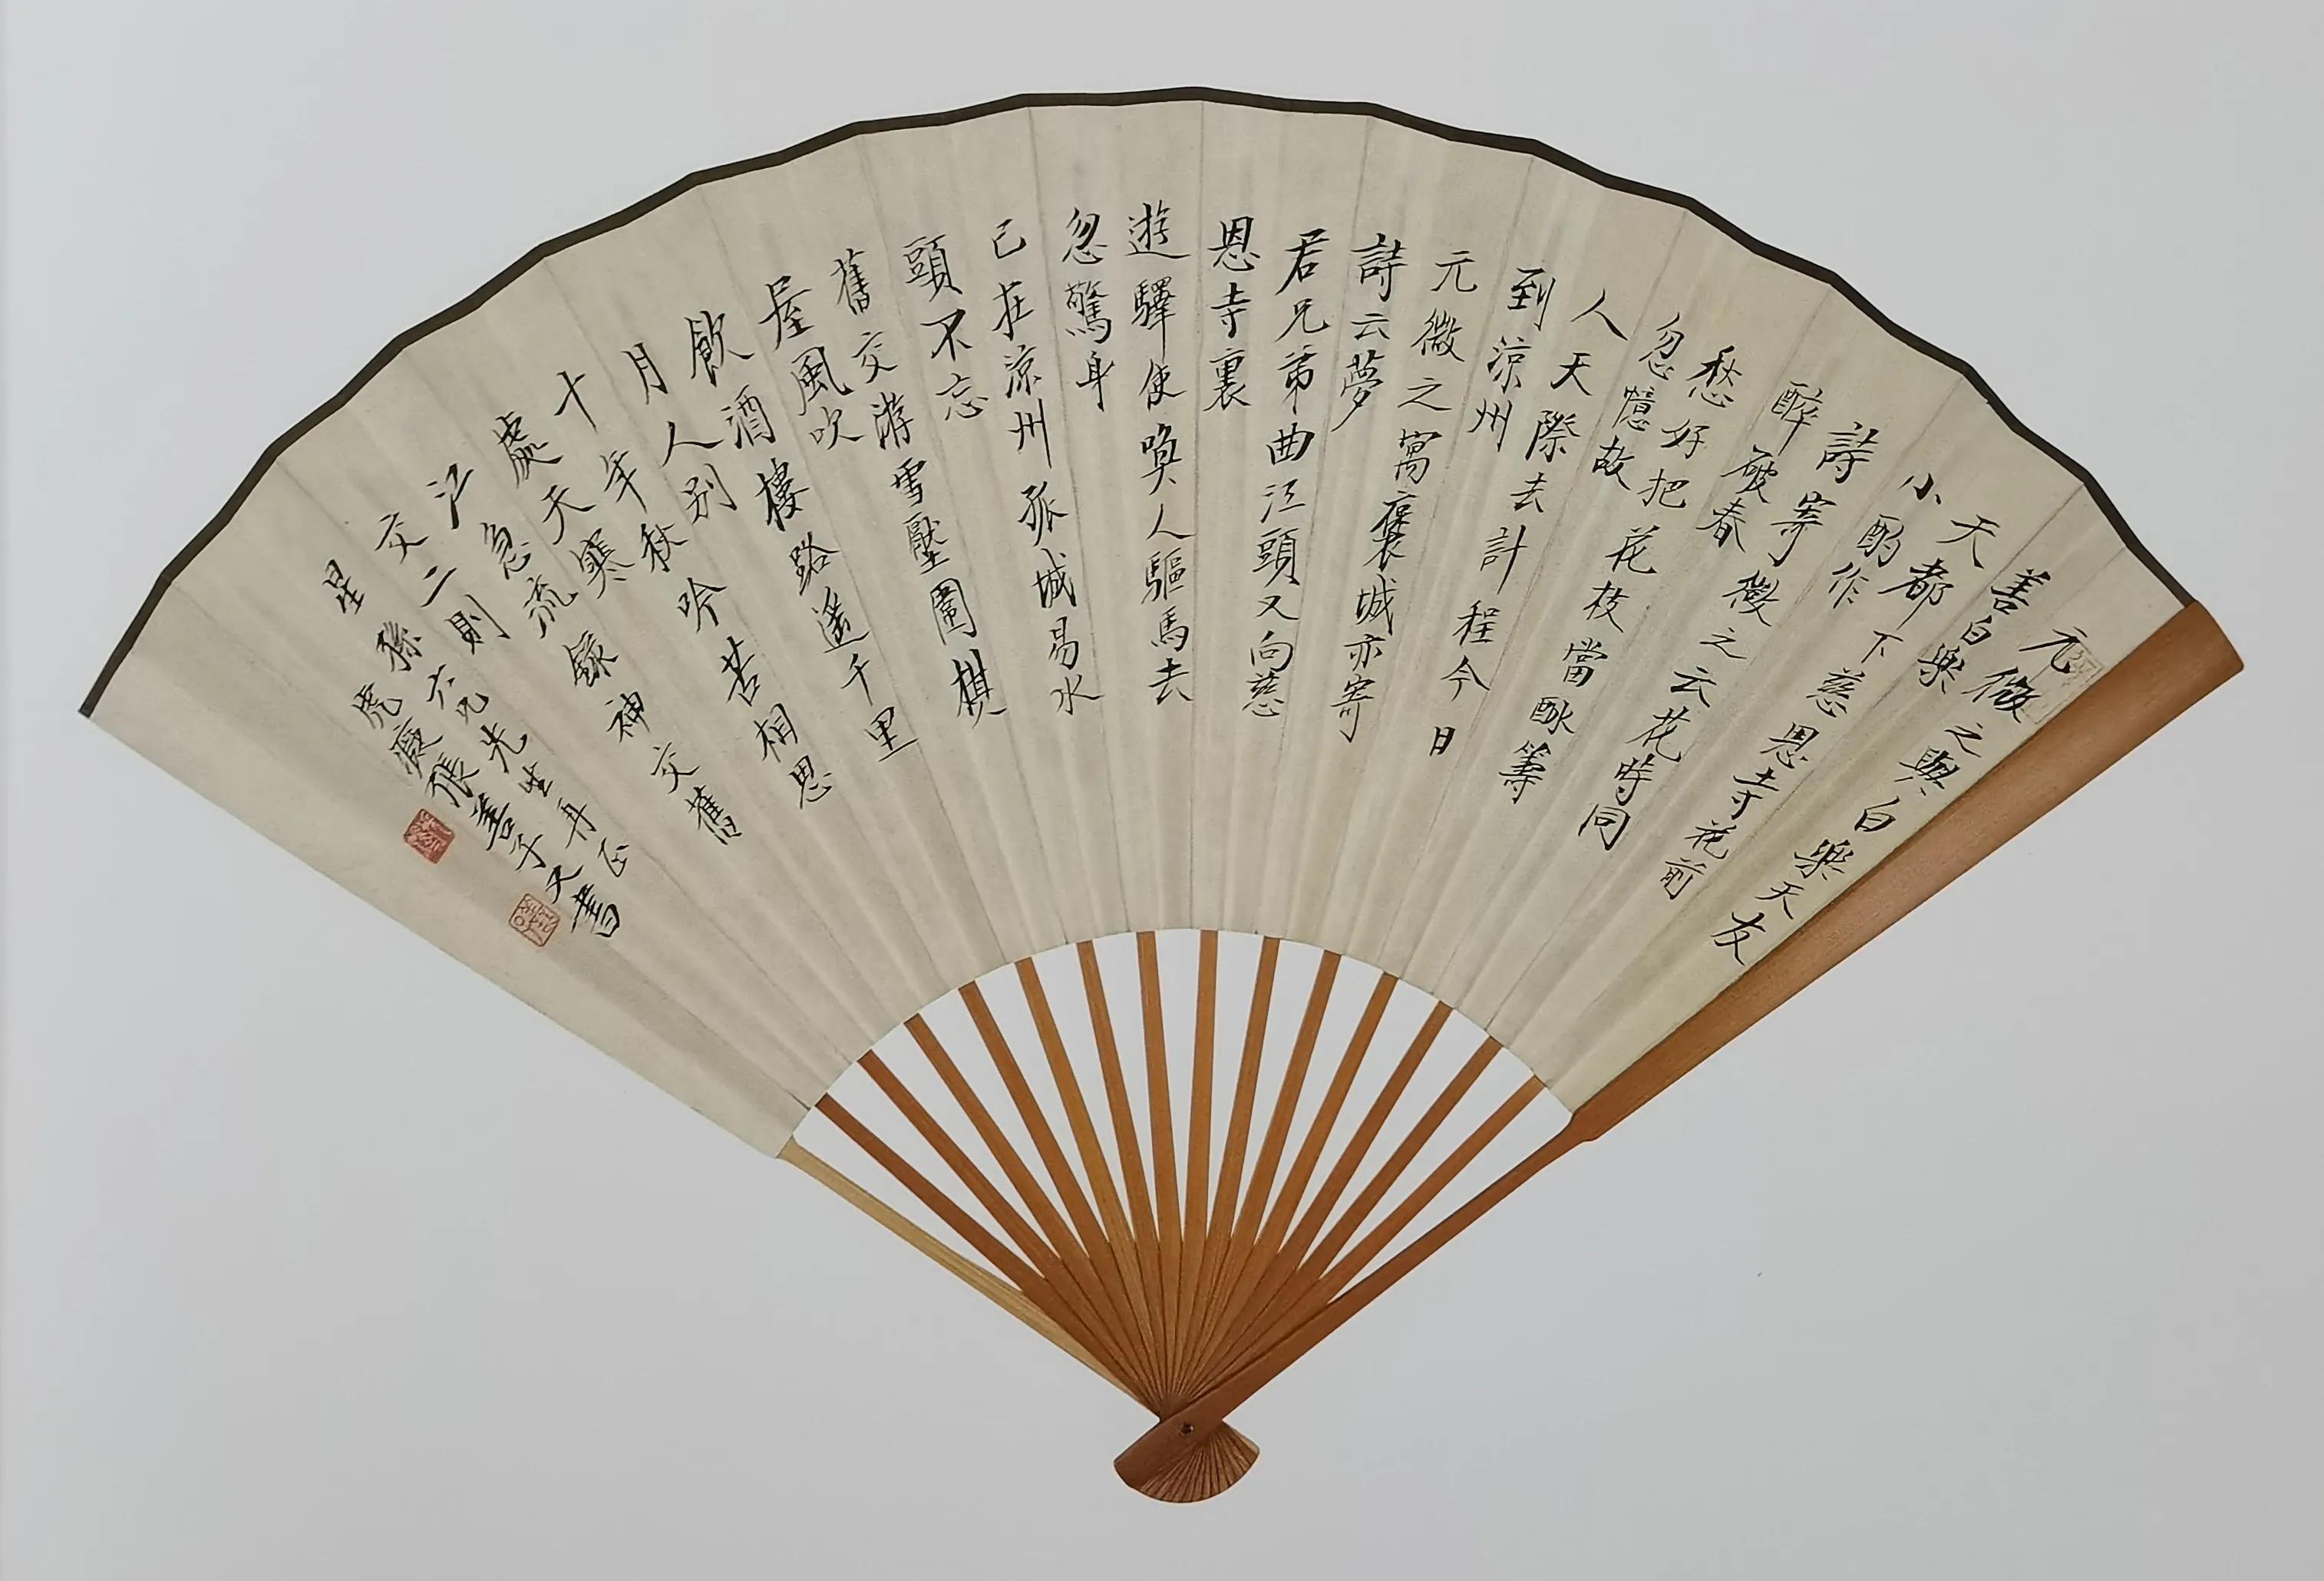 元微之與白樂天友
善白樂
天都下慈恩寺花前
小酌作
詩寄微之云花時同
醉破春
愁好把花枝當酬籌
忽憶故
人天際去計程今日
到涼州
元微之寓褒城亦寄
詩云夢
君兄弟曲江頭又向慈
恩寺裏
遊驛使喚人驅馬去
忽驚身
已在涼州孤城易水
頭不忘
舊交游雪壓圍棋
屋風吹
飲酒樓路遙千里
月人別
十年秋吟苦相思
處天寒
江急流錄神交舊
交二則
星孫六兄先生再正
虎癡張善子又書